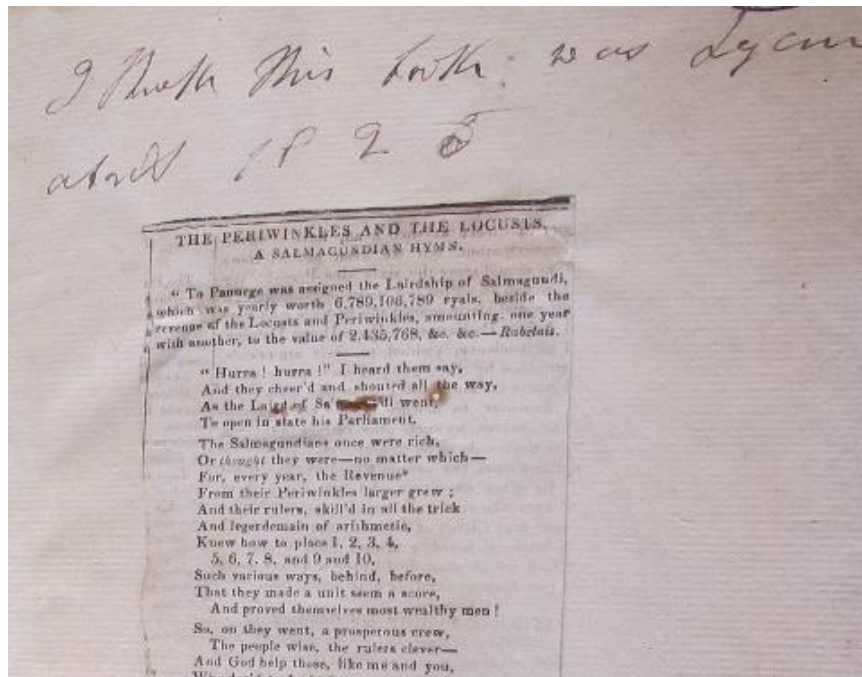 I think this book was
april 1825
THE PERIWINKLES AND THE LOCUSTS.
A SALMAGUNDIAN HYMN.
"To Panurge was assigned the Lairdship of Salmagundi,
which was yearly worth 6,789,106,789 ryals, beside the
revenue of the Locusts and Periwinkles, amounting one year
with another, to the value of 2,435,768, &c. &c.—Rabelais.
"Hurra! hurra!" I heard them say,
And they cheer'd and shouted all the way,
As the Laird of went,
To open in state his Parliament.
The Salmagundians once were rich,
Or thought they were—no matter which—
For, every year, the Revenue*
From their Periwinkles larger grew;
And their rulers, skill'd in all the trick
And legerdemain of arithmetic,
Knew how to place 1, 2, 3, 4,
5, 6, 7, 8, and 9 and 10,
Such various ways, behind, before,
That they made a unit seem a score,
And proved themselves most wealthy men!
So, on they went, a prosperous crew,
The people wise, the rulers clever—
And God help those, like me and you,